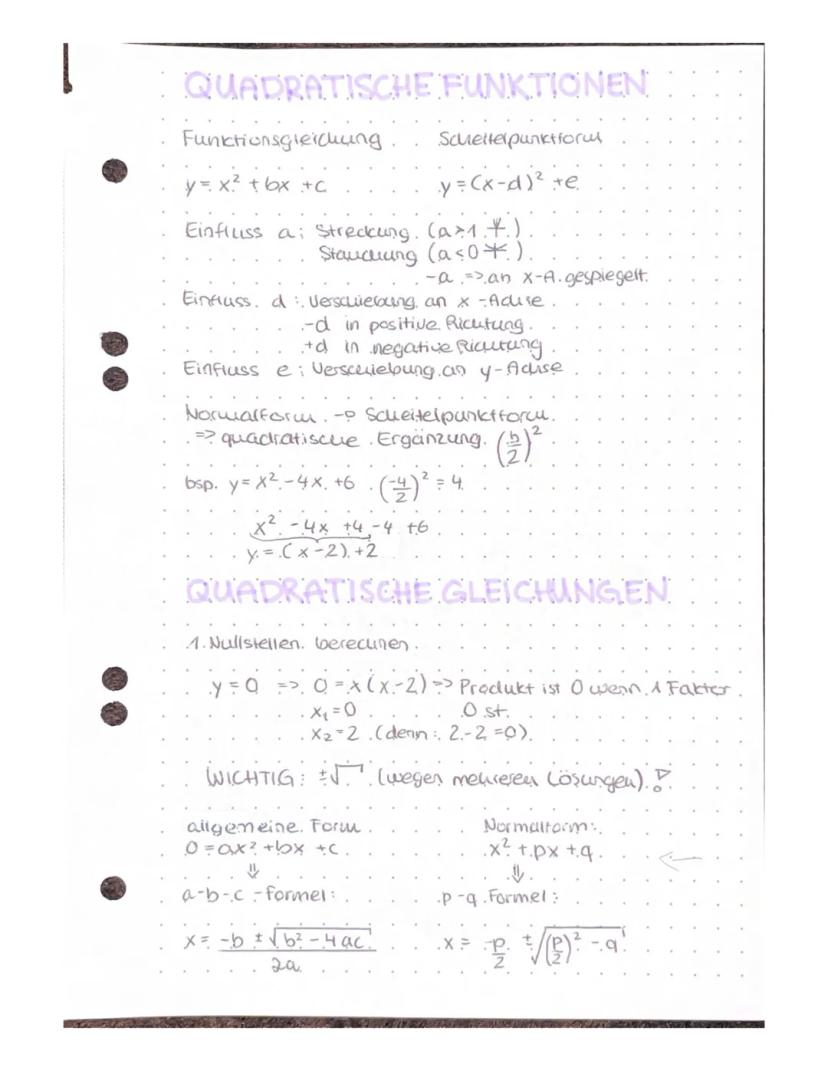 QUADRATISCHE FUNKTIONEN
Funktionsgleichung Scheitelpunktform
y = x² + bx + c y = (x-d)² + e
Einfluss a: Streckung (a>1 )
Stauchung (a<0 )
-a => an x-A. gespiegelt.
Einfluss d: Verschiebung an x-Achse
-d in positive Richtung
+d in negative Richtung
Einfluss e: Verschiebung an y-Achse
Normalform -> Scheitelpunktform
=> quadratische Ergänzung (b/2)²
bsp. y = x² - 4x + 6 (-4/2)² = 4
x² - 4x + 4 - 4 + 6
y = (x-2) + 2
QUADRATISCHE GLEICHUNGEN
1. Nullstellen berechnen
y = 0 => 0 = x(x-2) => Produkt ist 0 wenn 1 Faktor
x₁ = 0 0 st.
x₂ = 2 (denn: 2-2 = 0)
WICHTIG: ±√ (wegen mehreren Lösungen)!
allgemeine Form Normalform:
0 = ax² + bx + c x² + px + q ←
⇓ ⇓
a-b-c-Formel: p-q Formel:
x = (-b ± √(b² - 4ac))/2a x = -p/2 ± √((p/2)² - q)